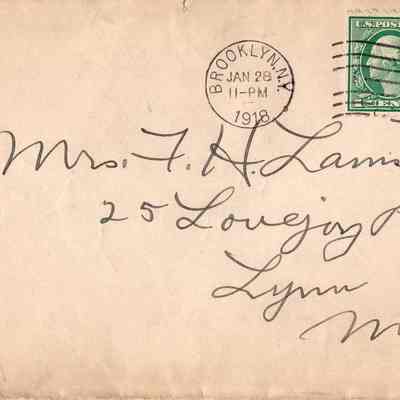 BROOKLYN, N.Y.
JAN 28
11-PM
1918
U.S. POST
CENT
Mrs. F. H. Lams
25 Lovejoy
Lynn
M